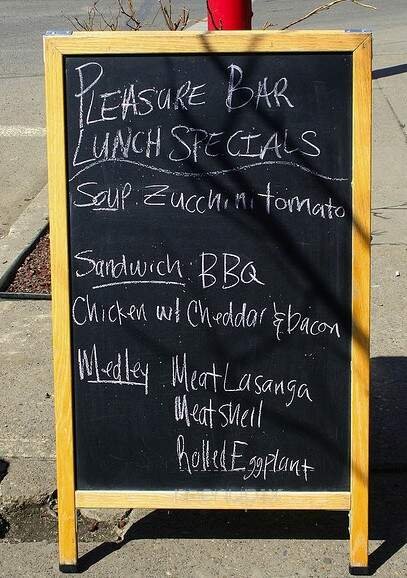 PLEASURE BAR
LUNCH SPECIALS
Soup: Zucchini tomato
Sandwich: BBQ
Chicken w/ Cheddar & bacon
Medley Meat Lasanga
Meat shell
Rolled Eggplant